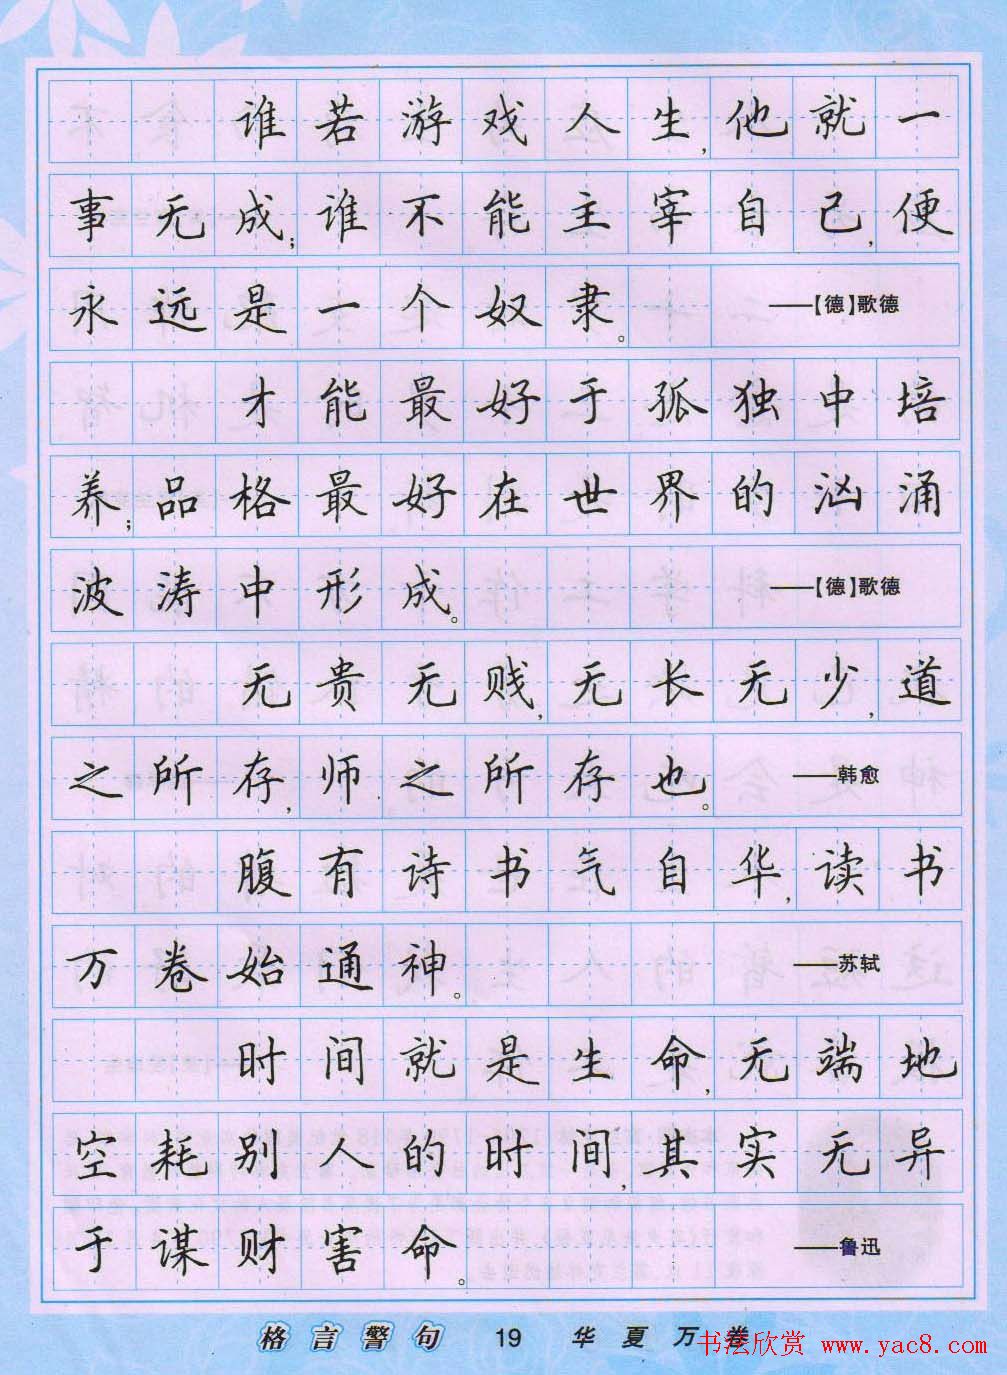 谁若游戏人生,他就一
事无成;谁不能主宰自己,便
永远是一个奴隶。 ——【德】歌德
才能最好于孤独中培
养;品格最好在世界的汹涌
波涛中形成。 ——【德】歌德
无贵无贱,无长无少,道
之所存,师之所存也。 ——韩愈
腹有诗书气自华,读书
万卷始通神。 ——苏轼
时间就是生命,无端地
空耗别人的时间,其实无异
于谋财害命。 ——鲁迅
格言警句 19 华夏万卷
书法欣赏 www.yac8.com